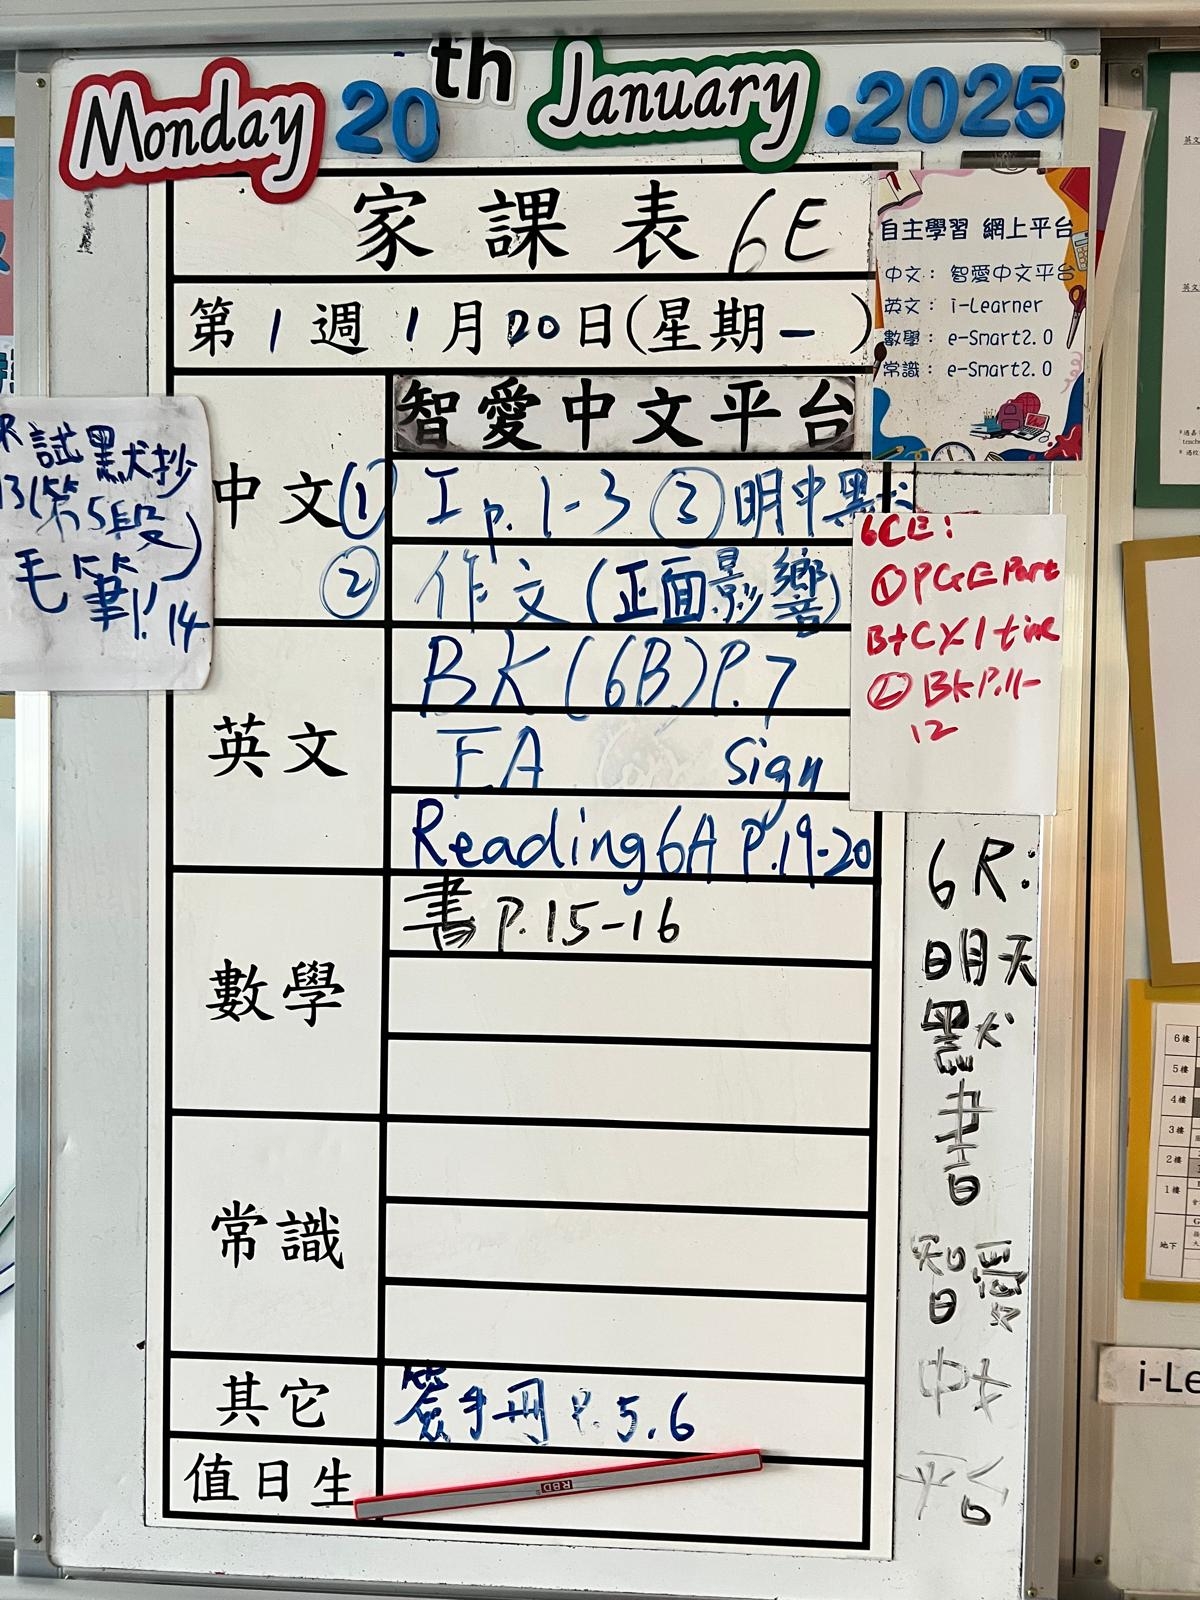 Monday 20th January .2025
家課表 6E
第1週 1月20日(星期一)
自主學習 網上平台
中文： 智愛中文平台
英文： i-Learner
數學： e-Smart2.0
常識： e-Smart2.0
智愛中文平台
中文 ① I p.1-3 ③ 明中默
② 作文 (正面影響)
試默抄
(第5段)
毛筆P.14
6CE:
① PGE Part
B+C X 1 time
② BK P.11-
12
英文
BK (6B) P.7
F.A Sign
Reading 6A P.19-20
數學
書 P.15-16
常識
其它
簽手冊 P.5.6
值日生
RBD
6R:
明天
默
書
智愛
中文
平台
6樓
5樓
4樓
3樓
2樓
1樓
地下
i-Le